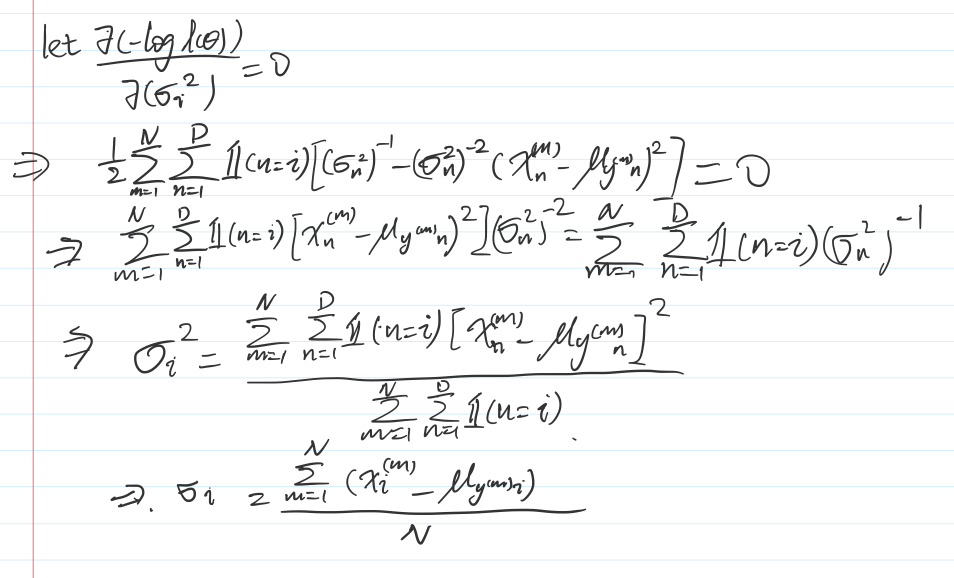 let ∂(-log l(θ)) / ∂(σ_i^2) = 0
⇒ 1/2 ∑_{m=1}^{N} ∑_{n=1}^{D} 𝟙(n=i) [(σ_n^2)^{-1} - (σ_n^2)^{-2} (x_n^{(m)} - μ_{y^{(m)}n})^2] = 0
⇒ ∑_{m=1}^{N} ∑_{n=1}^{D} 𝟙(n=i) [x_n^{(m)} - μ_{y^{(m)}n})^2] (σ_n^2)^{-2} = ∑_{m=1}^{N} ∑_{n=1}^{D} 𝟙(n=i) (σ_n^2)^{-1}
⇒ σ_i^2 = ∑_{m=1}^{N} ∑_{n=1}^{D} 𝟙(n=i) [x_n^{(m)} - μ_{y^{(m)}n}]^2 / ∑_{m=1}^{N} ∑_{n=1}^{D} 𝟙(n=i)
⇒. σ_i = ∑_{m=1}^{N} (x_i^{(m)} - μ_{y^{(m)}i}) / N